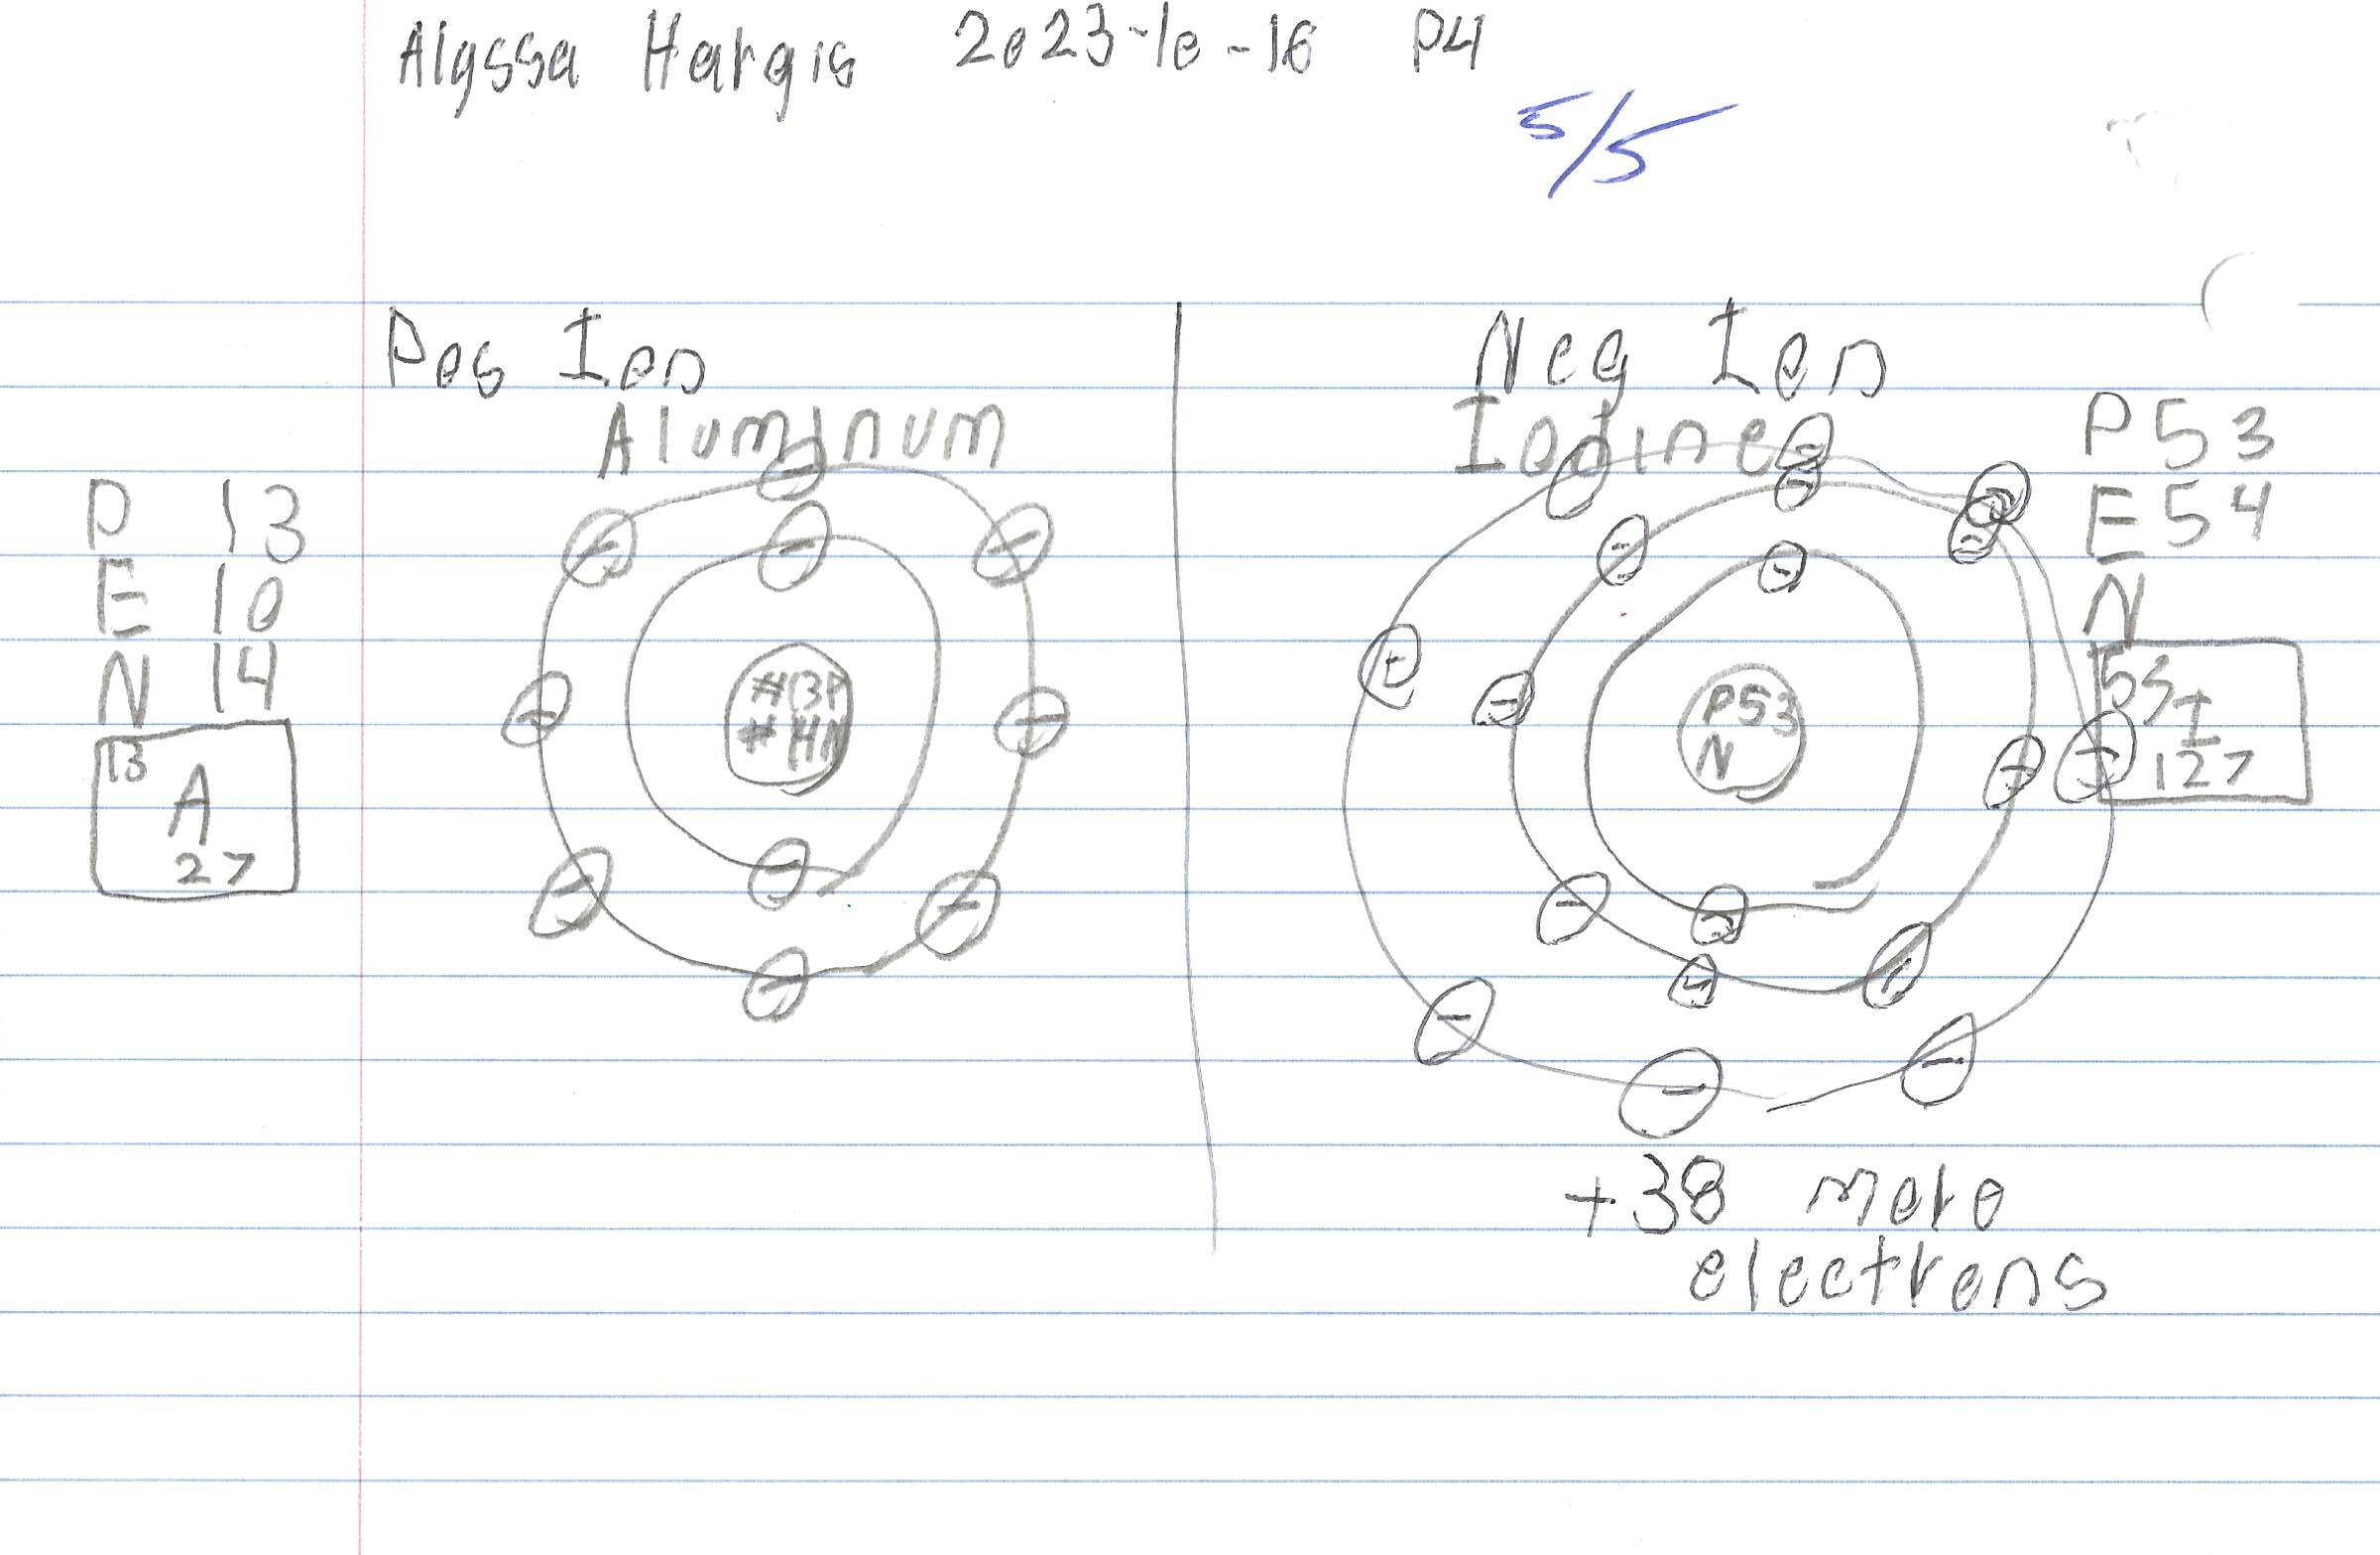 Alyssa Hargis 2023-10-16 P4
5/5
Pos Ion
Aluminum
P 13
E 10
N 14
13
A
27
#13P
#14N
Neg Ion
Iodine
P 53
E 54
N
53
I
127
P53
N
+38 more
electrons